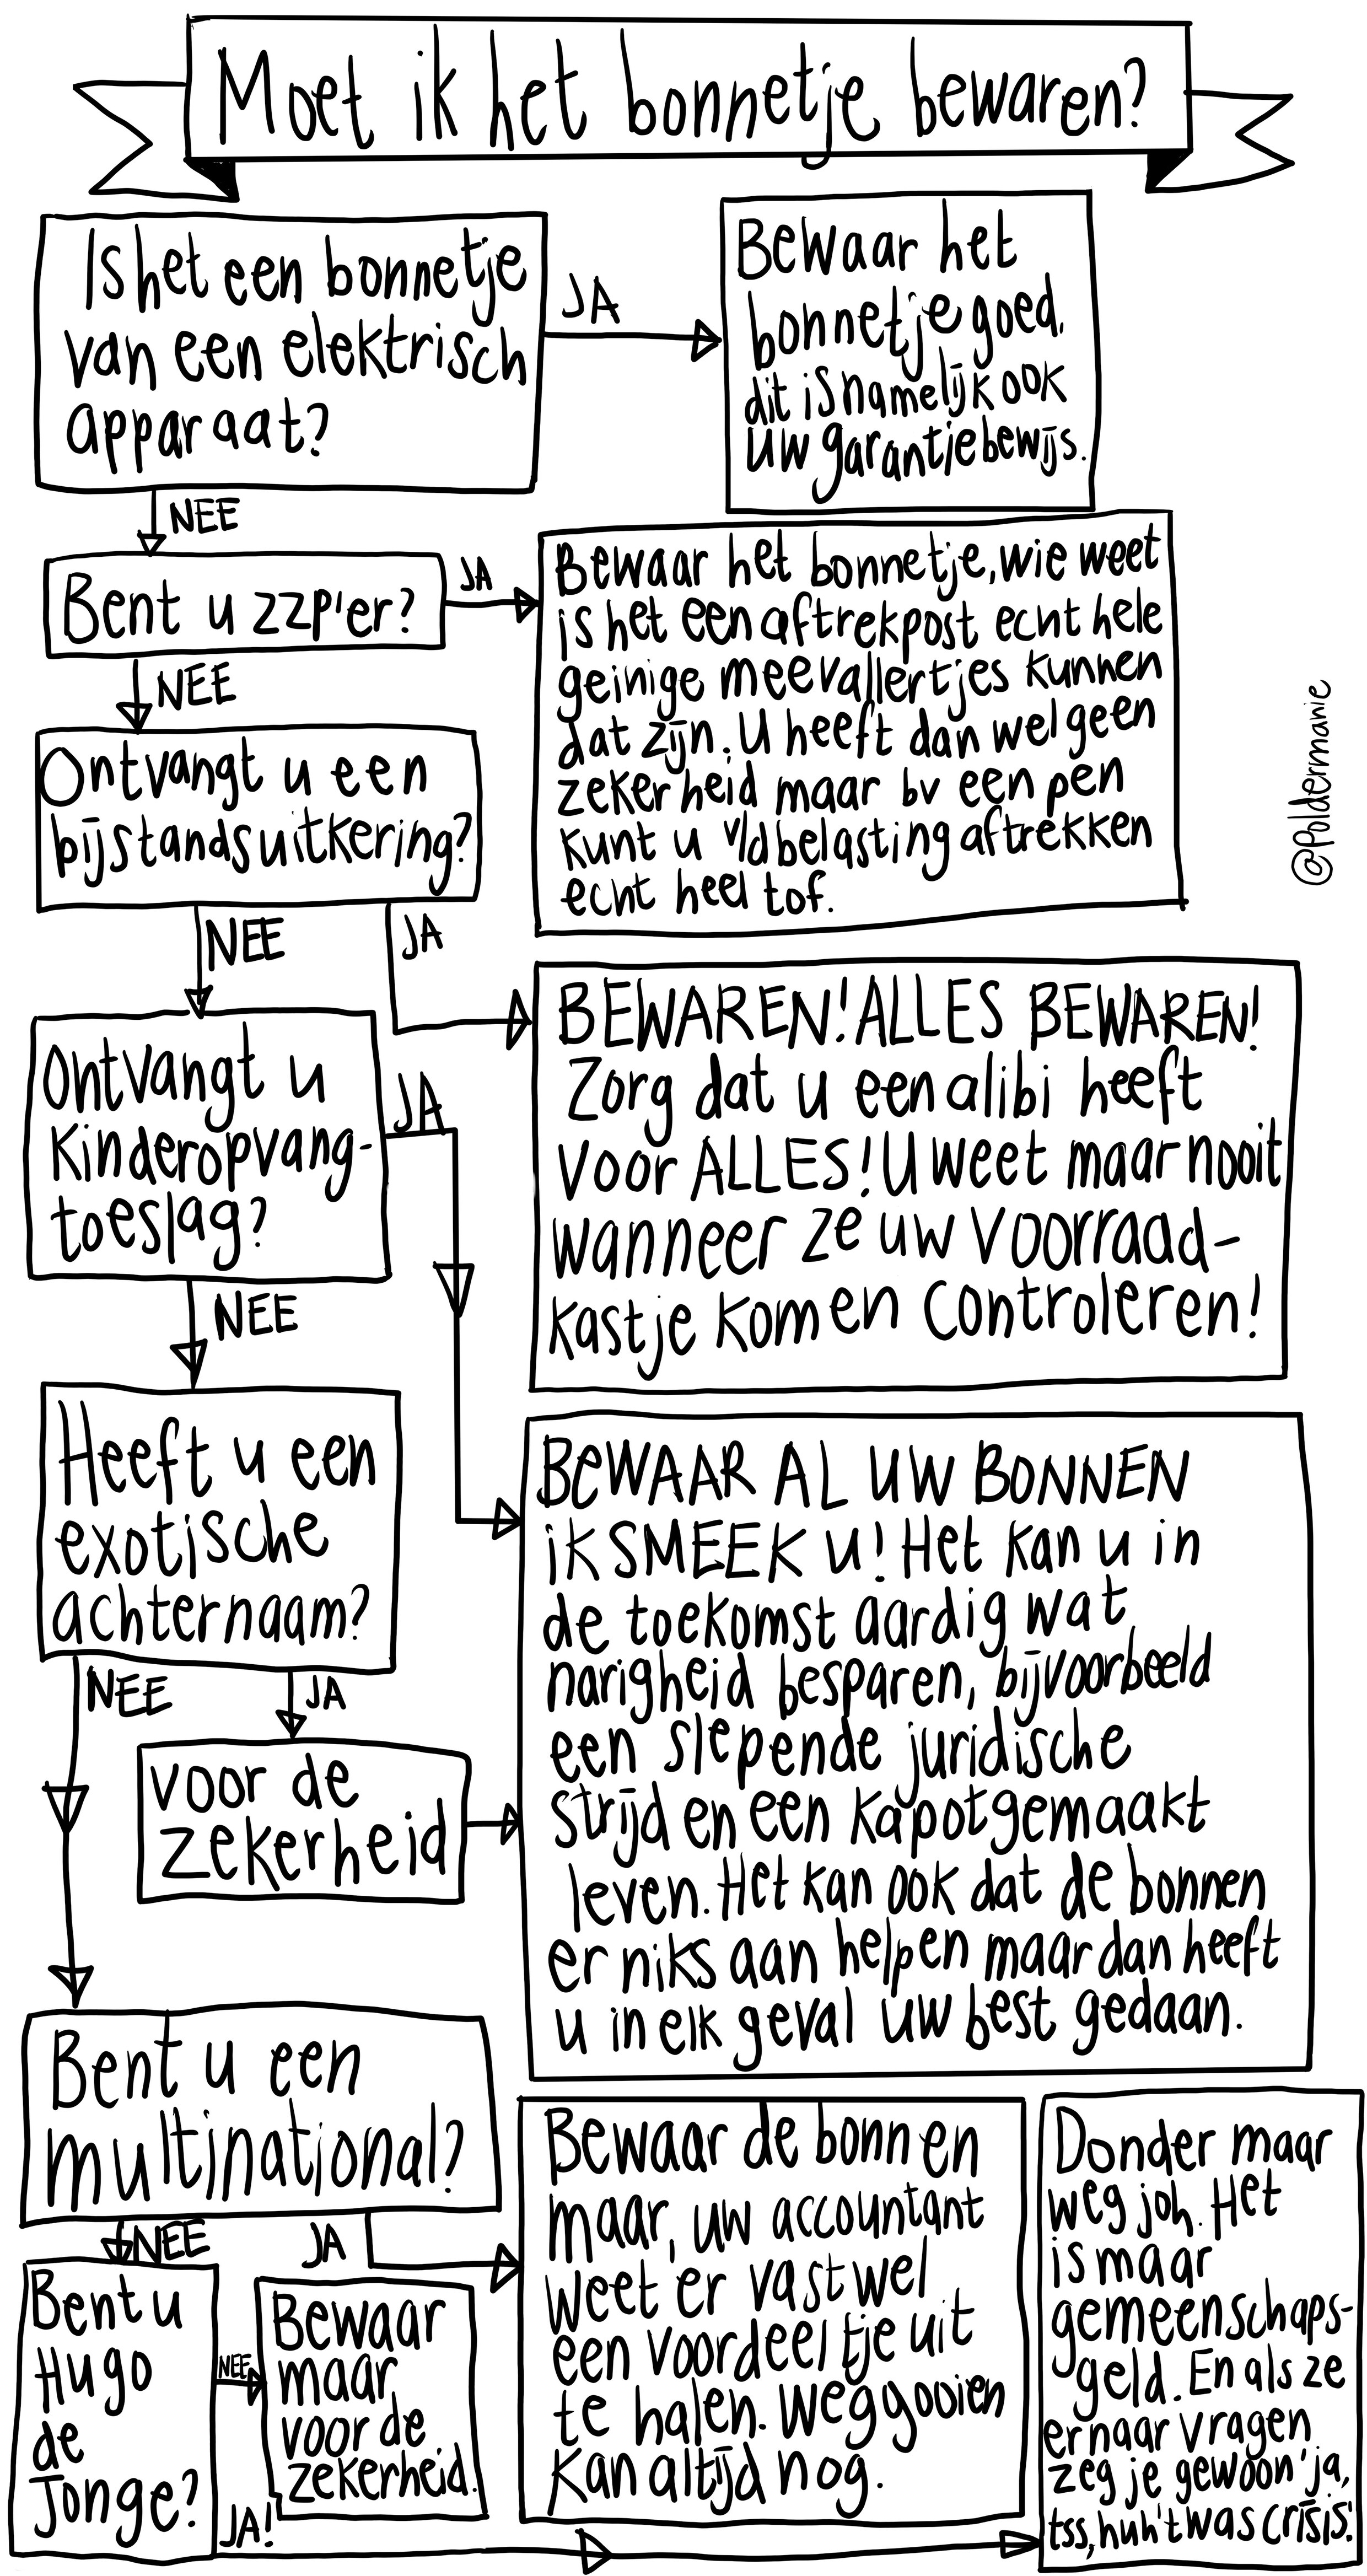 Moet ik het bonnetje bewaren?
Is het een bonnetje
van een elektrisch
apparaat?
JA
Bewaar het
bonnetje goed,
dit is namelijk ook
uw garantiebewijs.
NEE
Bent u zzp'er?
JA
Bewaar het bonnetje, wie weet
is het een aftrekpost echt hele
geinige meevallertjes kunnen
dat zijn. U heeft dan wel geen
zekerheid maar bv een pen
kunt u v/d belasting aftrekken
echt heel tof.
NEE
Ontvangt u een
bijstandsuitkering?
@Poldermanie
NEE
JA
BEWAREN! ALLES BEWAREN!
Zorg dat u een alibi heeft
voor ALLES! U weet maar nooit
wanneer ze uw voorraad-
kastje komen controleren!
Ontvangt u
kinderopvang-
toeslag?
JA
NEE
BEWAAR AL UW BONNEN
IK SMEEK U! Het kan u in
de toekomst aardig wat
narigheid besparen, bijvoorbeeld
een slepende juridische
strijd en een kapotgemaakt
leven. Het kan ook dat de bonnen
er niks aan helpen maar dan heeft
u in elk geval uw best gedaan.
Heeft u een
exotische
achternaam?
NEE
JA
voor de
zekerheid
Bent u een
multinational?
NEE
JA
Bewaar de bonnen
maar, uw accountant
weet er vast wel
een voordeeltje uit
te halen. Weggooien
kan altijd nog.
Bent u
Hugo
de
Jonge?
NEE
Bewaar
maar
voor de
zekerheid.
JA!
Donder maar
weg joh. Het
is maar
gemeenschaps-
geld. En als ze
ernaar vragen
zeg je gewoon 'ja,
tss, huh 't was crisis'.